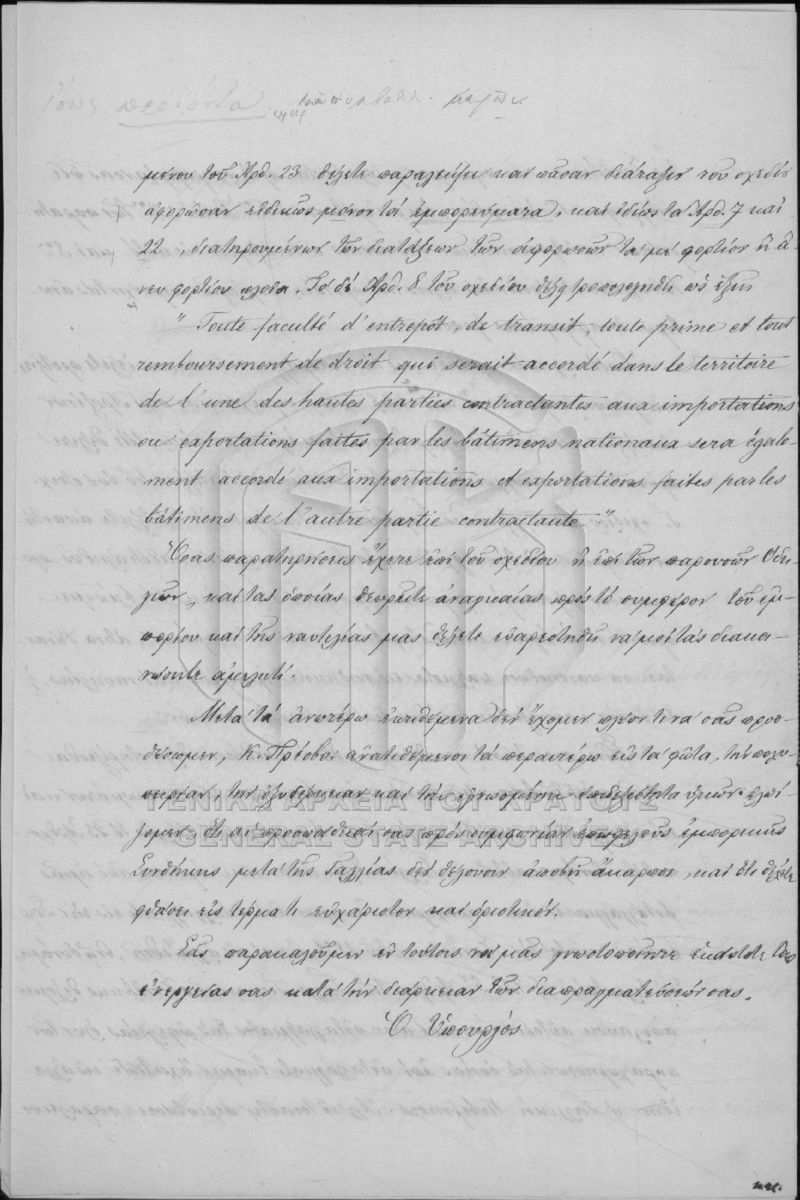 μένου τοῦ Ἀρθ. 23 θέλετε παραλείψει καὶ πᾶσαν διάταξιν τοῦ σχεδίου
ἀφορῶσαν εἰδικῶς μόνον τὰ ἐμπορεύματα, καὶ ἰδίως τὰ Ἀρθ. 7 καὶ
22, διατηρουμένων τῶν διατάξεων τῶν ἀφορωσῶν τὰ μὲ φορτίον ἢ ἄ-
νευ φορτίου πλοῖα. Τὸ δὲ Ἀρθ. 8 τοῦ σχεδίου θέλει τροπολογηθῆ ὡς ἑξῆς
"Toute faculté d'entrepôt, de transit, toute prime et tout
remboursement de droit qui serait accordé dans le territoire
de l'une des hautes parties contractantes aux importations
ou exportations faites par les bâtimens nationaux sera égale-
ment accordé aux importations et exportations faites par les
bâtimens de l'autre partie contractante."
Ὅσας παρατηρήσεις ἔχετε ἐπὶ τοῦ σχεδίου ἢ ἐπὶ τῶν παρουσῶν ὁδη-
γιῶν, καὶ τὰς ὁποίας θεωρεῖτε ἀναγκαίας πρὸς τὸ συμφέρον τοῦ ἐμ-
πορίου καὶ τῆς ναυτιλίας μας θέλετε εὐαρεστηθῆ νὰ μοὶ τὰς διακοι-
νώσητε ἀμελητί.
Μετὰ τὰ ἀνωτέρω ἐκτιθέμενα δὲν ἔχομεν πλέον τι νὰ σᾶς προσ-
θέσωμεν, Κ. Πρέσβυ. ἀνατιθέμενοι τὰ περαιτέρω εἰς τὰ φῶτα, τὴν πολυ-
πειρίαν, τὴν ὀξυδέρκειαν καὶ τὴν ἐγνωσμένην ἐπιδεξιότητα ὑμῶν ἐλπί-
ζομεν ὅτι αἱ προσπάθειαί σας πρὸς συμφωνίαν ἐπωφελοῦς ἐμπορικῆς
Συνθήκης μετὰ τῆς Γαλλίας δὲν θέλουσιν ἀποβῆ ἄκαρποι, καὶ ὅτι θέλετε
φθάσει εἰς τέρμα τι εὐχάριστον καὶ ὁριστικόν.
Σᾶς παρακαλοῦμεν ἐν τούτοις νὰ μᾶς γνωστοποιῆτε ἑκάστοτε τὰς
ἐνεργείας σας κατὰ τὴν διάρκειαν τῶν διαπραγματεύσεών σας.
Ὁ Ὑπουργὸς
ΓΕΝΙΚΑ ΑΡΧΕΙΑ ΤΟΥ ΚΡΑΤΟΥΣ
GENERAL STATE ARCHIVES